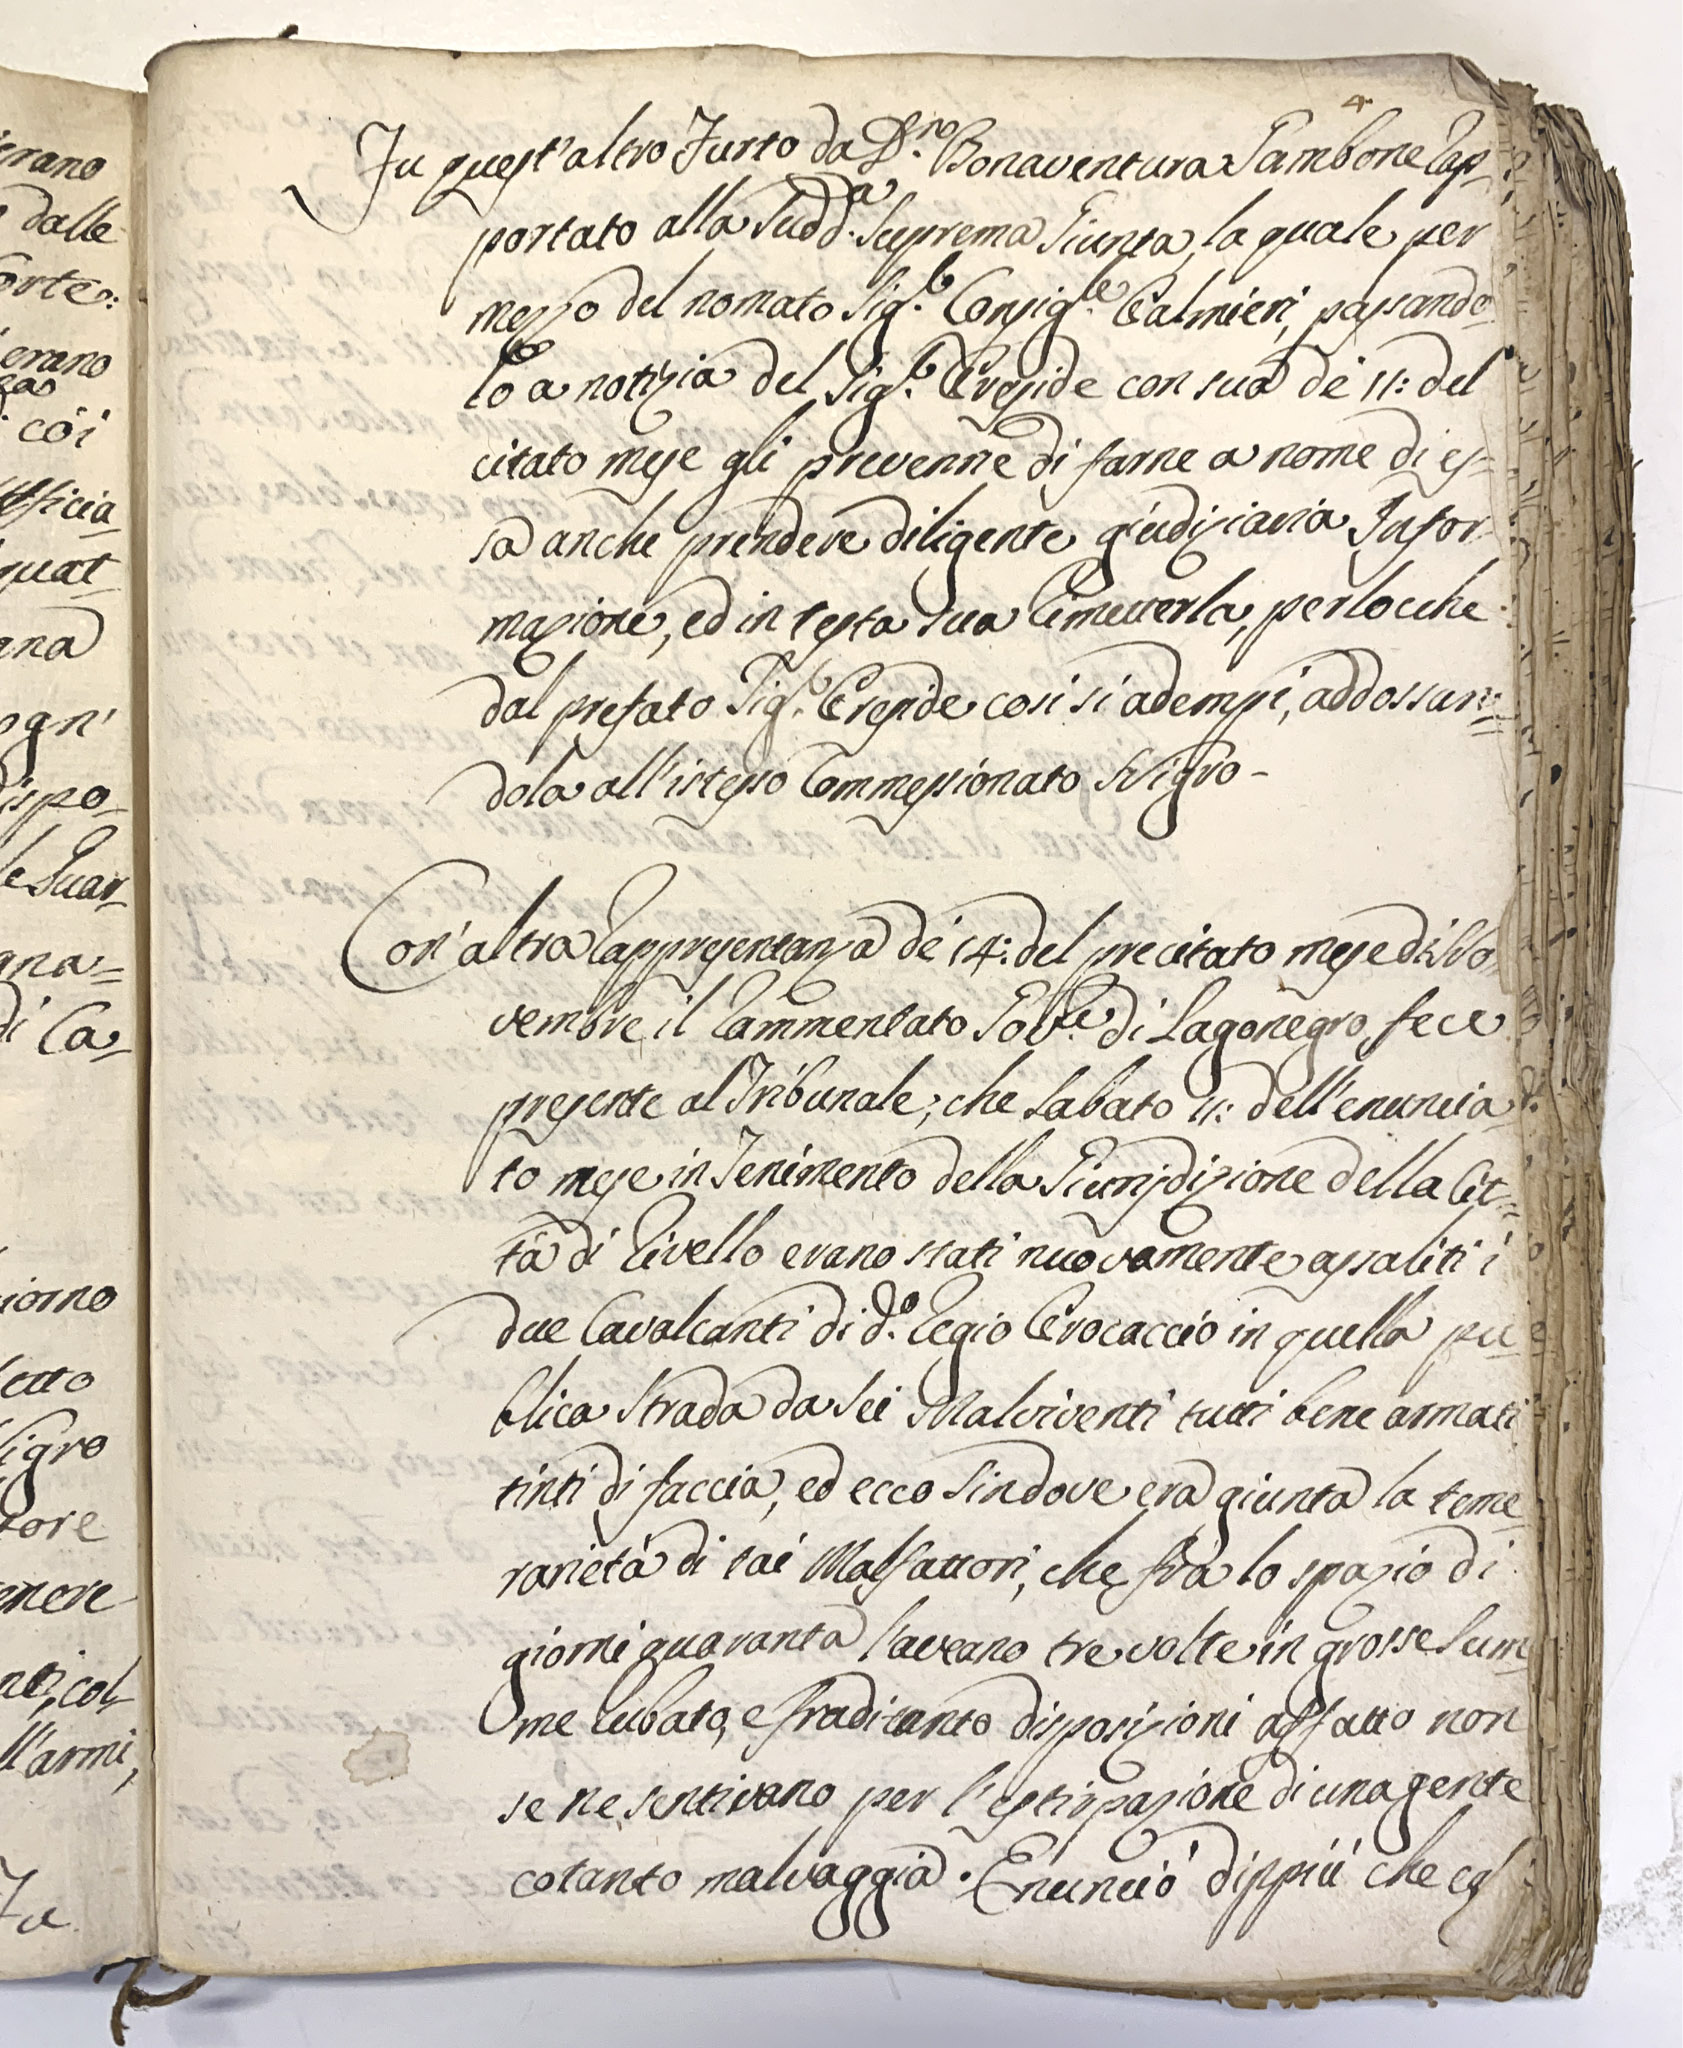 4.
Fu quest'altro Furto da D.no Bonaventura Gambone rap-
portato alla Sudd.a Suprema Giunta, la quale per
mezzo del nomato Sig.r Consig.re Palmieri, passando-
lo a notizia del Sig.r Preside con sua de' 11: del
citato mese gli prevenne di farne a nome di es-
sa anche prendere diligente giudiziaria Infor-
mazione, ed in testa sua rimetterla, perlocche
dal prefato Sig.r Preside così si adempì, addossan-
dola all'istesso Commessionato Nigro -
Con' altra rappresentanza de' 14: del precitato mese di No-
vembre il rammentato Gov.re di Lagonegro fece
presente al Tribunale, che Sabato 11: dell'enuncia-
to mese in Tenimento della Giurisdizione della Cit-
tà di Rivello erano stati nuovamente assaliti i
due Cavalcanti di D.o Regio Procaccio in quella pu-
blica Strada da Sei Malviventi tutti bene armati
tinti di faccia, ed ecco Sindove era giunta la teme-
rarietà di tai Malfattori, che frà lo spazio di
giorni quaranta l'aveano tre volte in grosse Sum-
me rubato, e fraditanto disposizioni affatto non
se ne sentivano per l'estirpazione di una gente
cotanto malvaggia. Enunciò dippiù che
erano
dalle
orte:
erano
coi
fficia-
quat-
ana
ogn'
dispo-
le Guar-
gna=
di Ca-
iorno
etto
igro
tore
enere
nti, col-
ll'armi,
Fu